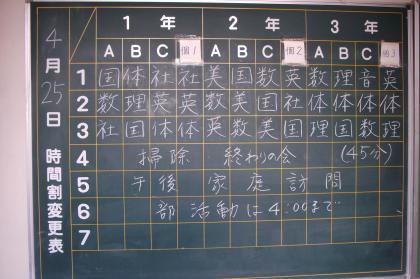 4月25日 時間割変更表
1年 2年 3年
A B C 個1 A B C 個2 A B C 個3
1 国 体 社 社 美 国 数 英 数 理 音 英
2 数 理 英 英 数 美 国 社 体 体 体 体
3 社 国 体 体 英 数 美 国 理 国 数 理
4 掃除 終わりの会 (45分)
5 午後 家庭訪問
6 部活動は4:00まで
7